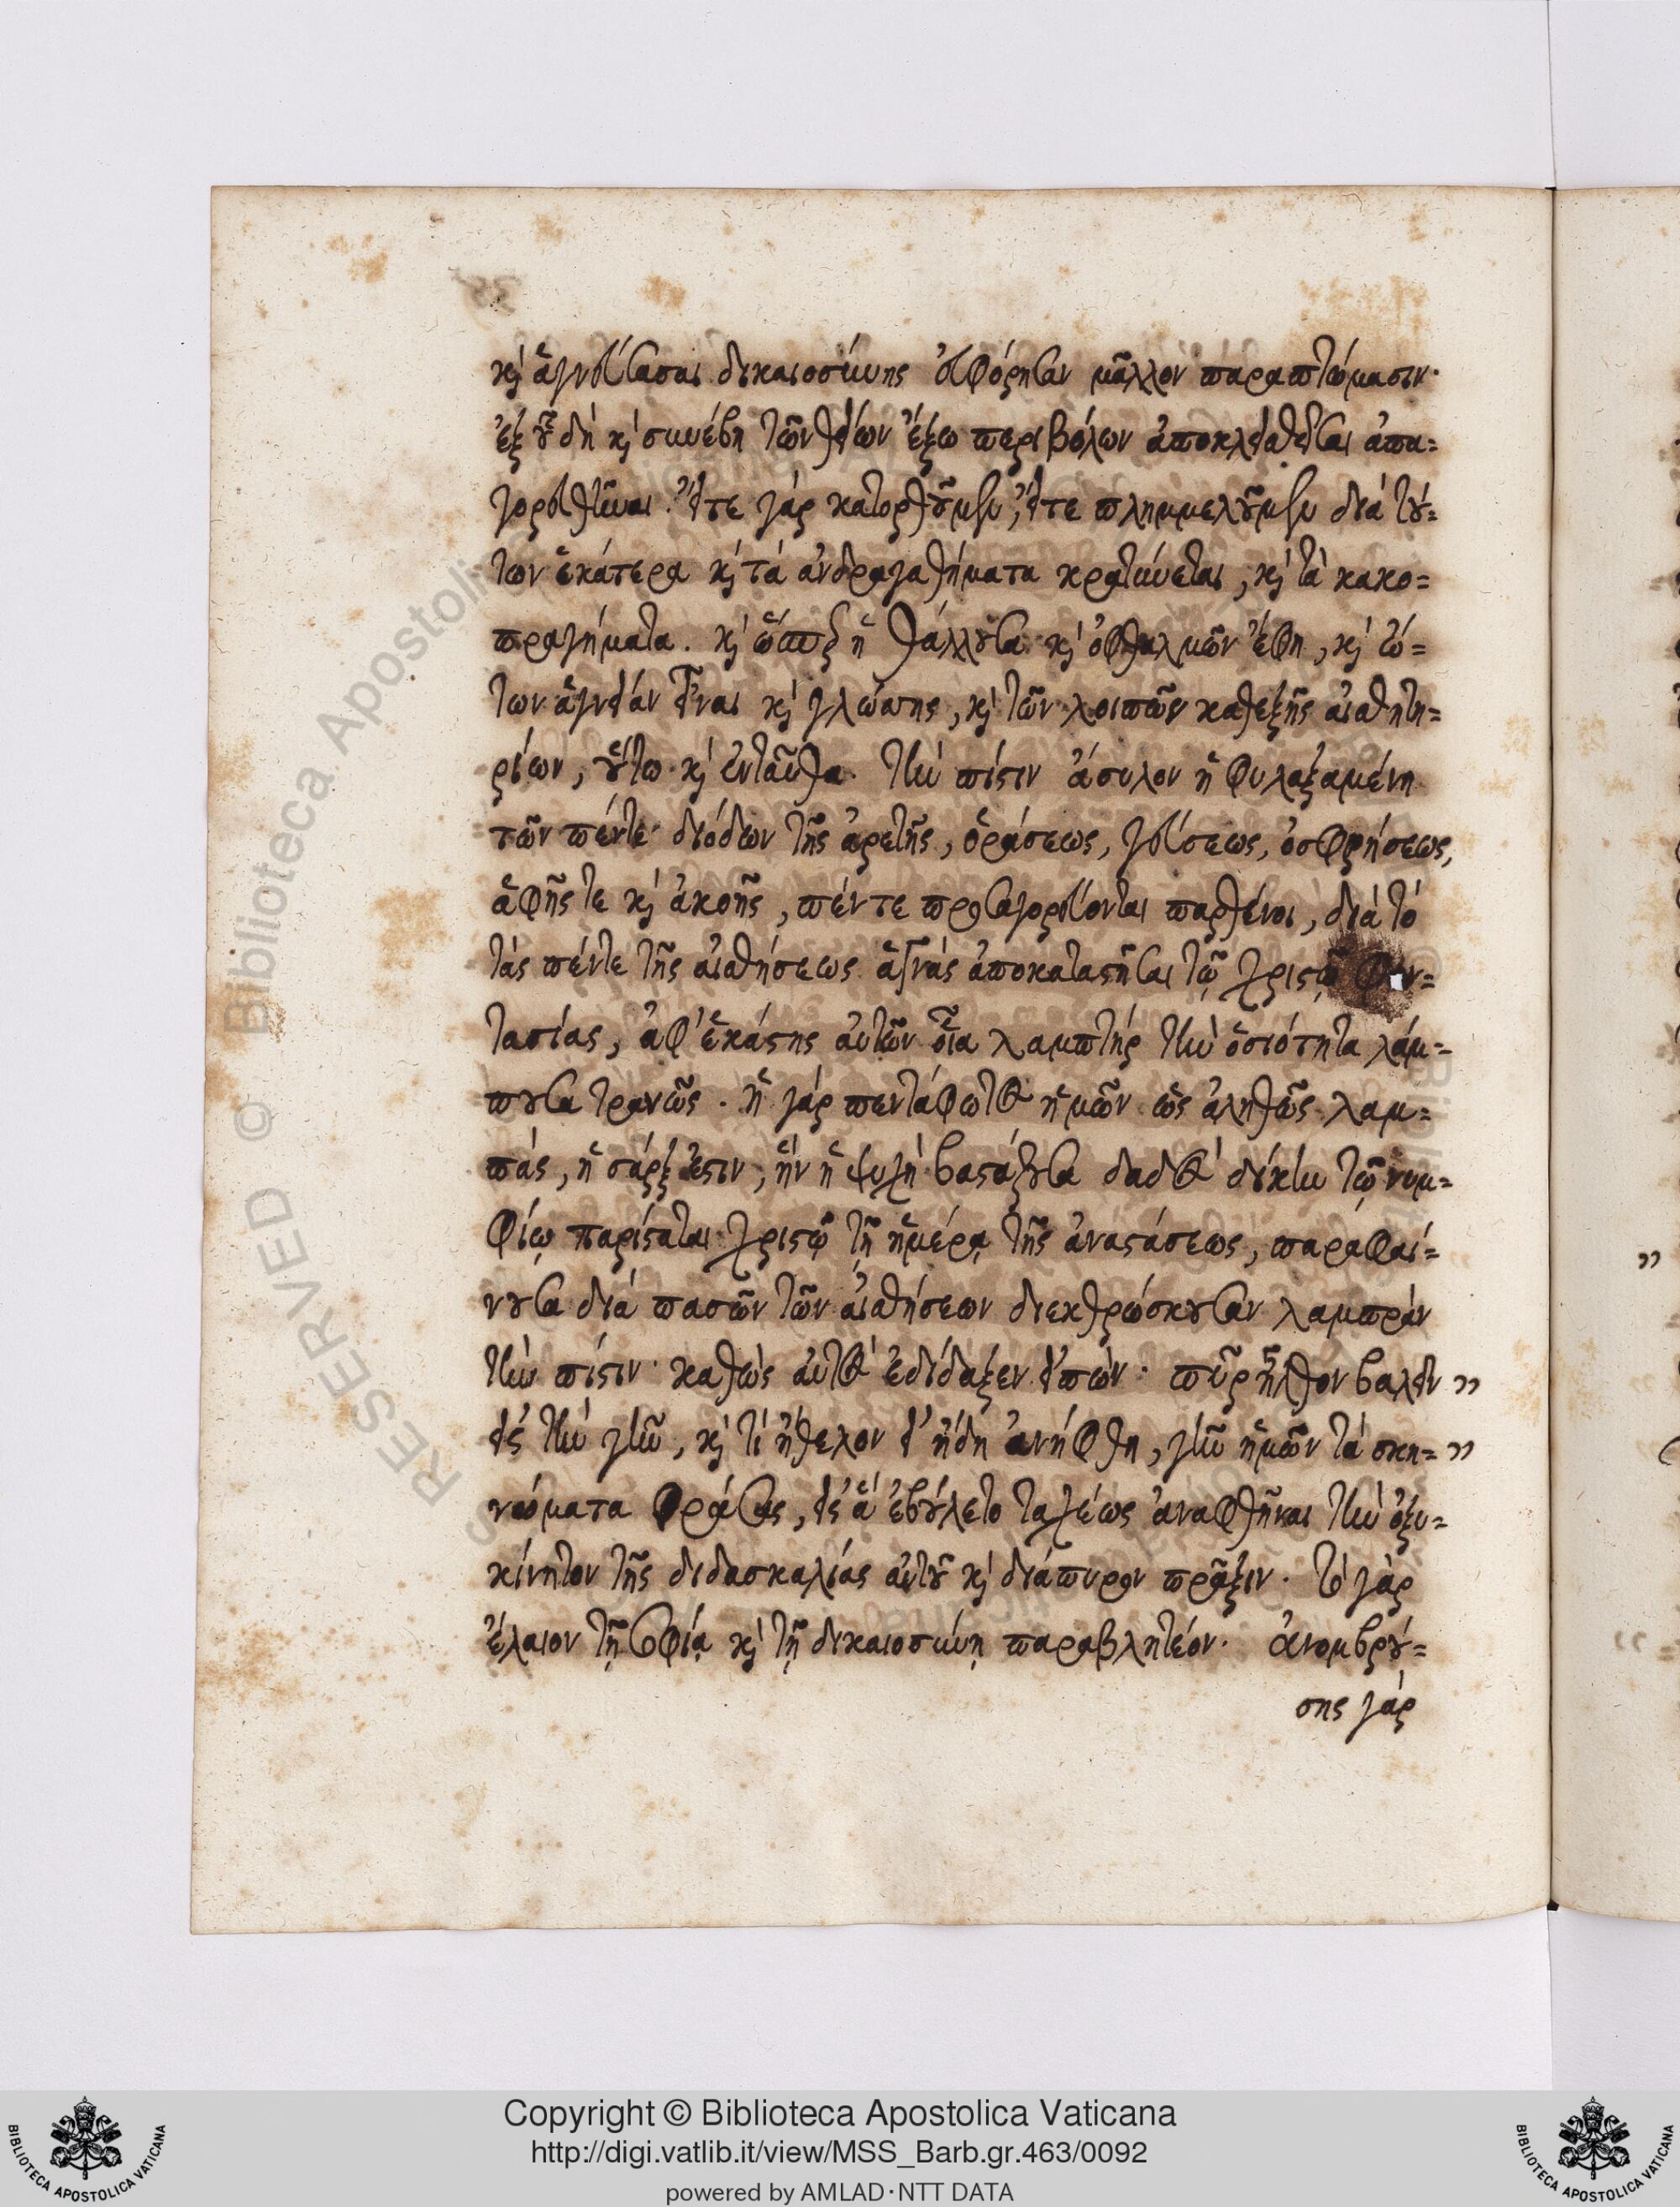 κỳ ἁγνεύσασαι δικαιοσύνης ἐφόρησαν μᾶλλον παραπτώμασιν·
ἐξ οὗ δὴ κỳ συνέβη τῶν θείων ἔξω περιβόλων ἀποκλεισθείσαι ἀπα=
γορευθῆναι. εἴτε γάρ κατορθοῦμεν, εἴτε πλημμελοῦμεν διά τού=
των ἑκάτερα κỳ τά ἀνδραγαθήματα κρατύνεται, κỳ τὰ κακο=
πραγήματα. κỳ ὥσπερ ἡ θάλλουσα κỳ ὀφθαλμῶν ἔφη, κỳ ὤ=
των ἁγνείαν εἶναι κỳ γλώσσης, κỳ τῶν λοιπῶν καθεξῆς αἰσθητη=
ρίων, οὕτω κỳ ἐνταῦθα τὴν πίστιν ἄσυλον ἡ φυλαξαμένη
τῶν πέντε διόδων τῆς ἀρετῆς, ὁράσεως, γεύσεως, ὀσφρήσεως,
ἁφῆς τε κỳ ἀκοῆς, πέντε προσαγορεύονται παρθένοι, διά τὸ
τάς πέντε τῆς αἰσθήσεως ἁγνάς ἀποκαταστῆσαι τῷ χριστῷ φαν=
τασίας, ἀφ' ἑκάστης αὐτῶν οἷα λαμπτήρ τὴν ὁσιότητα λάμ=
πουσα τρανῶς. ἡ γάρ πεντάφωτος ἡμῶν ὡς ἀληθῶς λαμ=
πάς, ἡ σάρξ ἐστιν, ἣν ἡ ψυχή βαστάζουσα δαδός δίκην τῷ νυμ=
φίῳ παρίσταται χριστῷ τῇ ἡμέρᾳ τῆς ἀναστάσεως, παραφαί=
νουσα διά πασῶν τῶν αἰσθήσεων διεκθρώσκουσαν λαμπράν
τὴν πίστιν· καθώς αὐτός ἐδίδαξεν εἰπών· πῦρ ἦλθον βαλεῖν ,,
εἰς τὴν γῆν, κỳ τί ἤθελον εἰ ἤδη ἀνήφθη, γῆν ἡμῶν τά σκη= ,,
νώματα φράσας, εἰς ἅ ἐβούλετο ταχέως ἀναφθῆναι τὴν ὀξυ=
κίνητον τῆς διδασκαλίας αὐτοῦ κỳ διάπυρον πρᾶξιν. τό γάρ
ἔλαιον τῇ σοφίᾳ κỳ τῇ δικαιοσύνῃ παραβλητέον. ἀνομβρού=
σης γάρ
Copyright © Biblioteca Apostolica Vaticana
http://digi.vatlib.it/view/MSS_Barb.gr.463/0092
powered by AMLAD·NTT DATA